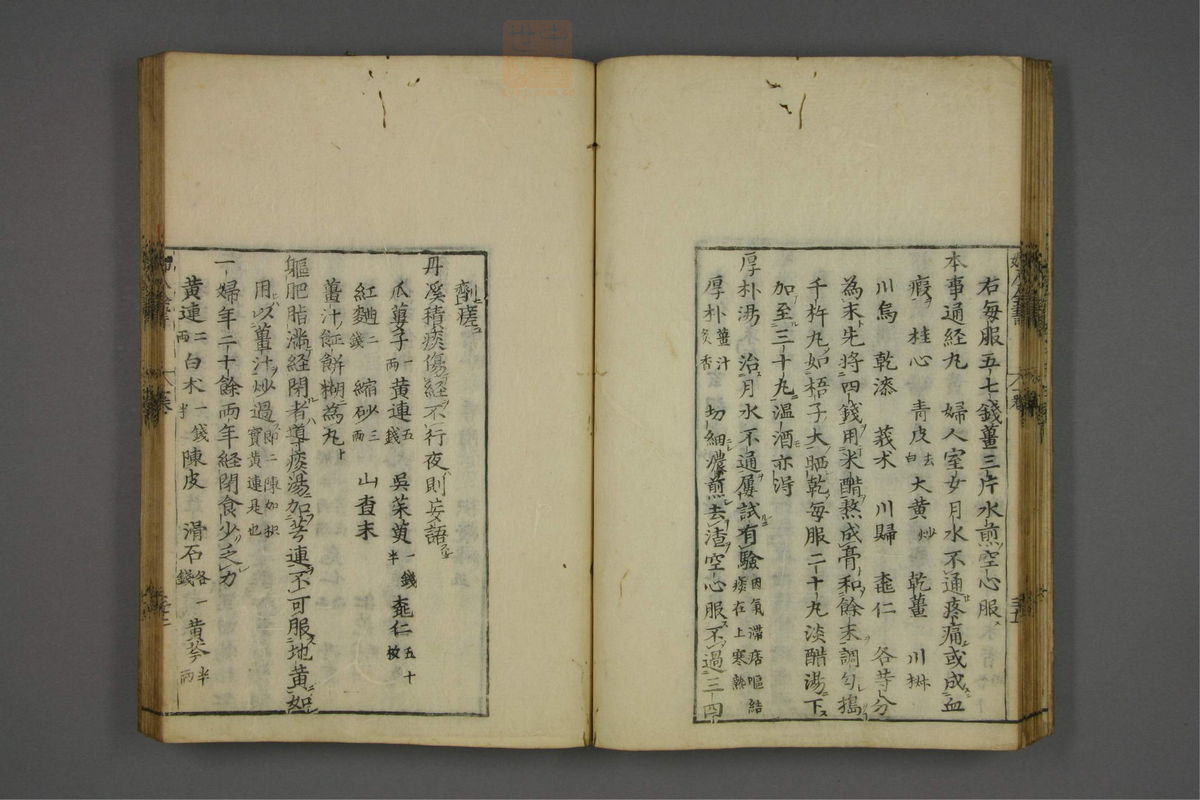 右每服五七錢薑三片水煎空心服
本事通経丸 婦人室女月水不通疼痛或成血
瘕 桂心 青皮去白 大黄炒 乾薑 川椒
川烏 乾漆 莪术 川歸 桃仁 各等分
為末先將四錢用米醋熬成膏和餘末調勻搗
千杵丸如梧子大晒乾每服二十丸淡醋湯下
加至三十丸温酒亦得
厚朴湯 治月水不通屢試有驗因氣滯痞嘔結痰在上寒熱
厚朴薑汁炙香 切細濃煎去渣空心服不過三四
劑瘥
丹溪積痰傷経不行夜則妄語
瓜蔞子一兩 黄連五錢 吳茱萸一錢半 桃仁五十枚
紅麯二錢 縮砂三兩 山査末
薑汁䭔餅糊為丸
軀肥脂滿経閉者導痰湯加芎連不可服地黄如
用以薑汁炒過即二陳加枳實黄連是也
一婦年二十餘兩年経閉食少乏力
黄連二兩 白术一錢半 陳皮 滑石各一錢 黄芩半兩